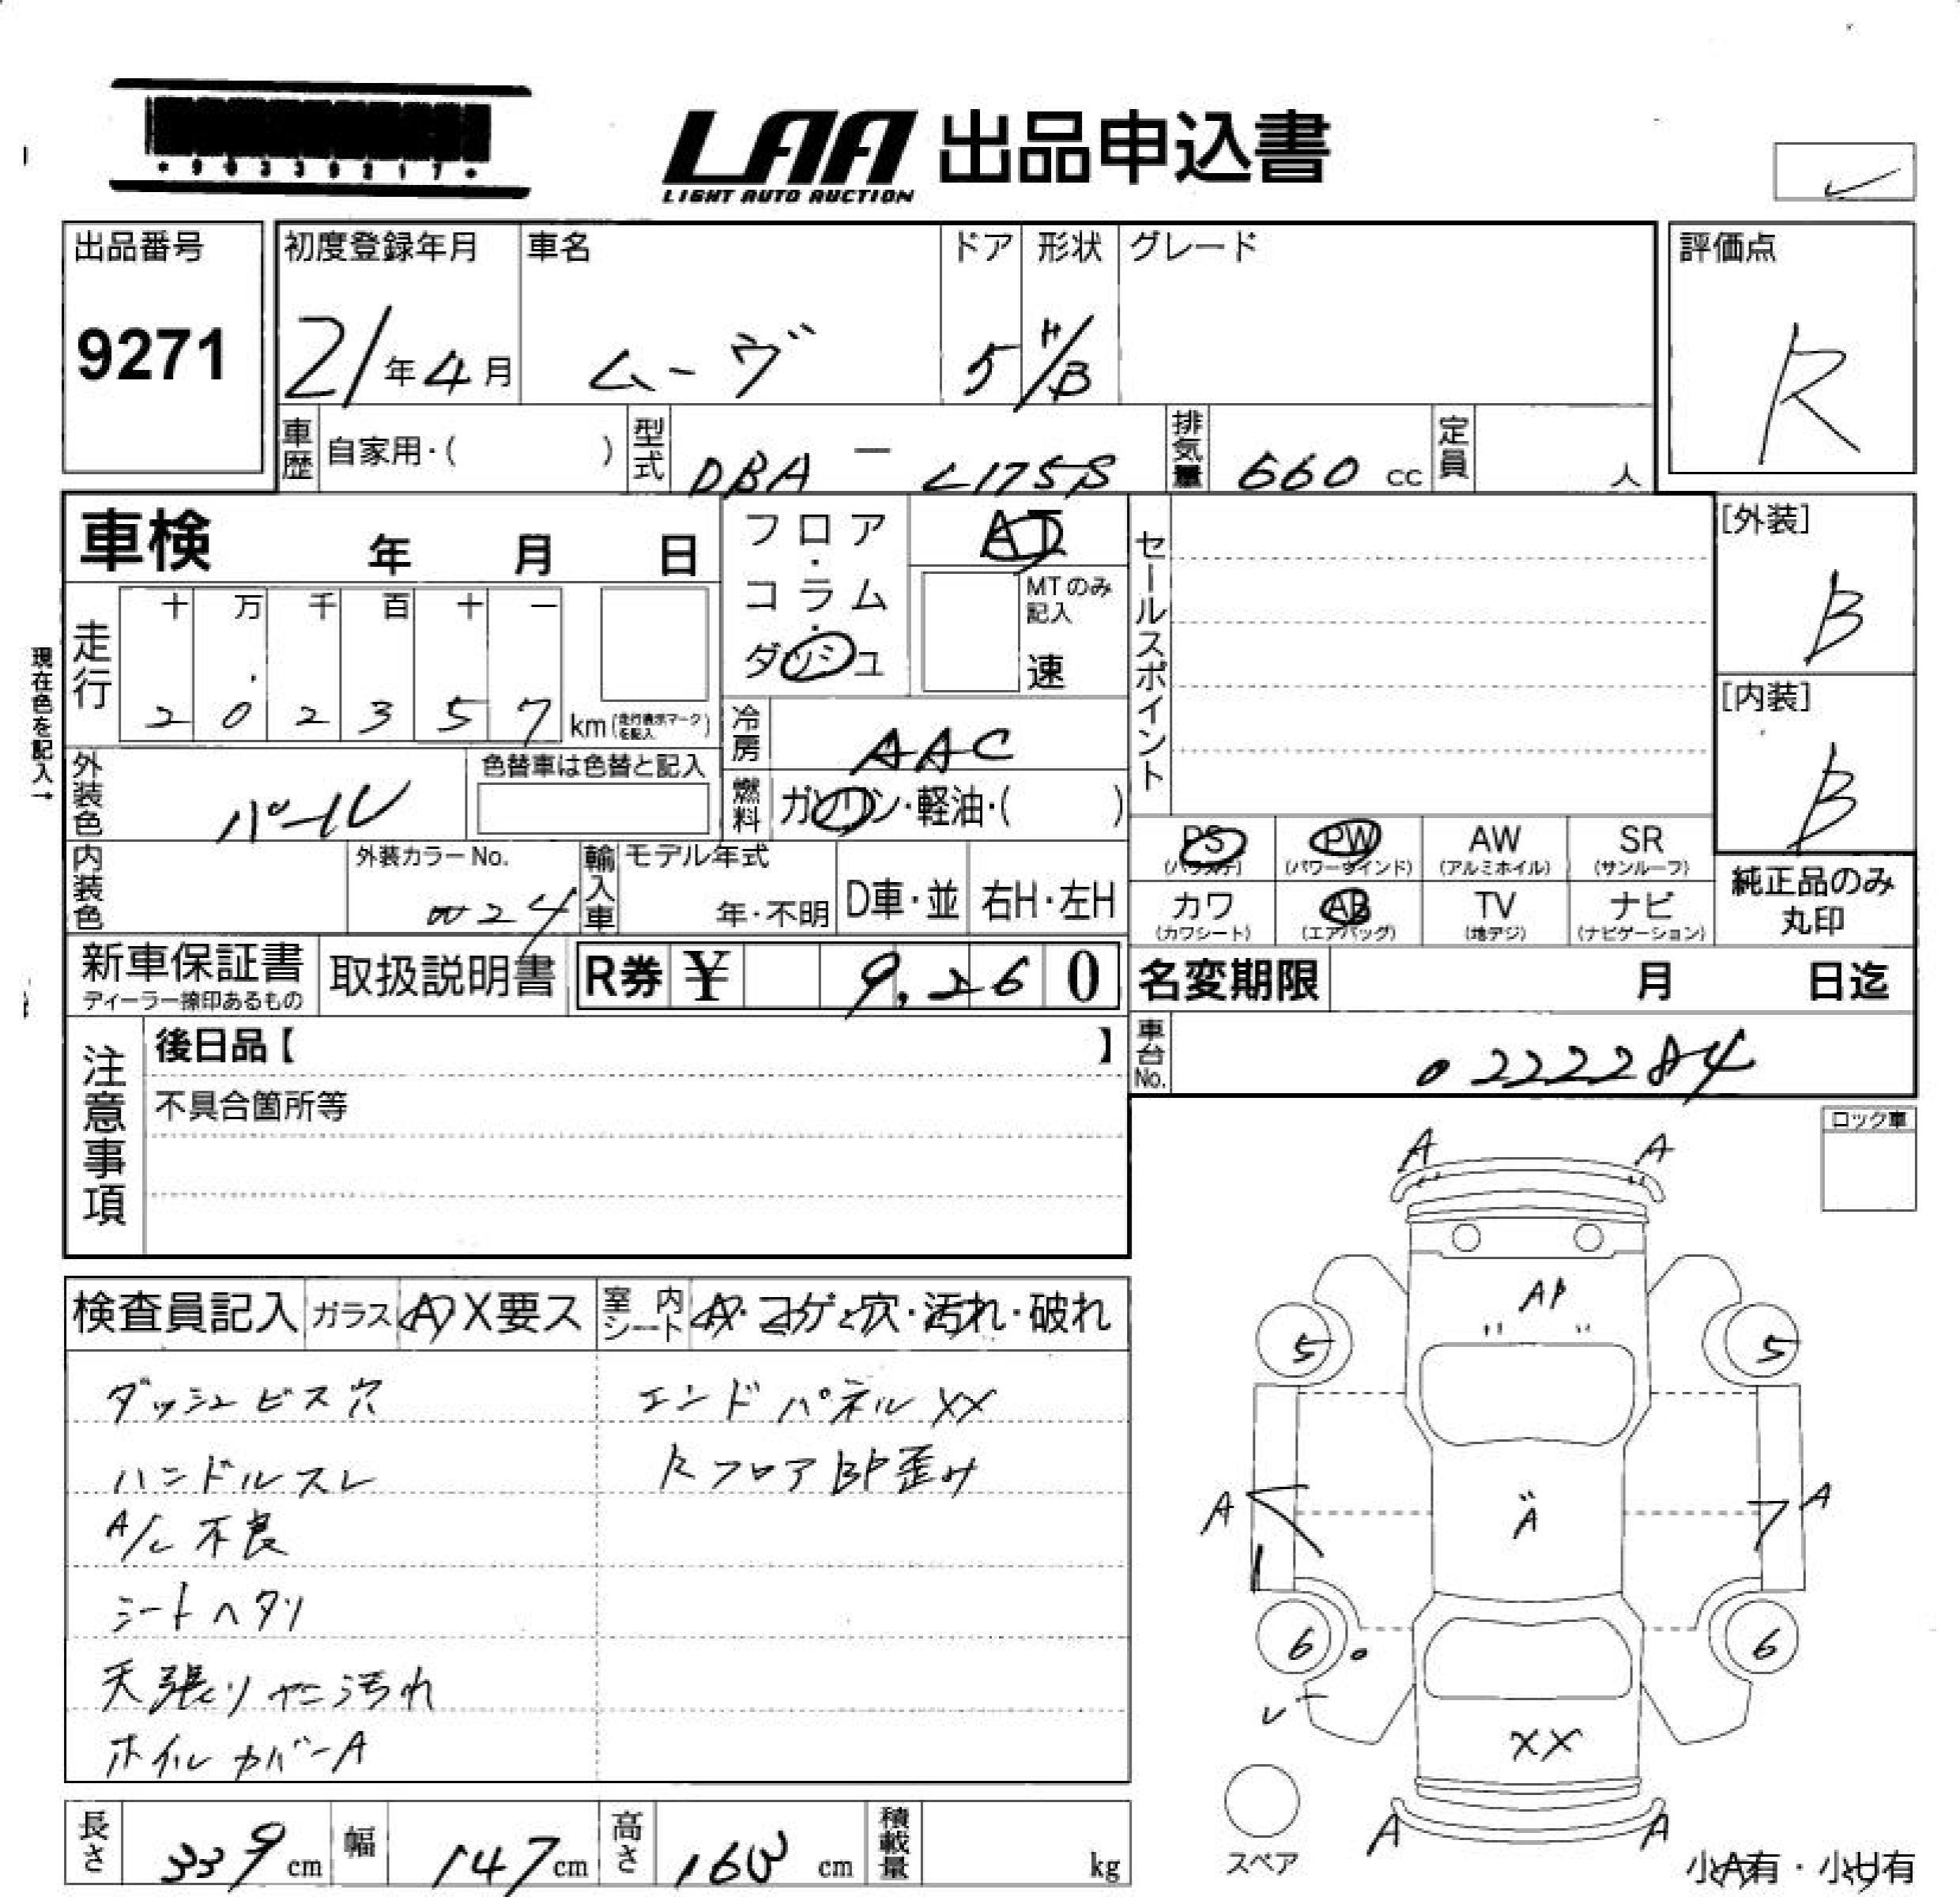 LAA 出品申込書
LIGHT AUTO AUCTION
出品番号
9271
初度登録年月
21年4月
車名
ムーヴ
ドア
5
形状
H/B
グレード
評価点
R
車歴
自家用・( )
型式
DBA - L175S
排気量
660 cc
定員
人
車検 年 月 日
フロア・コラム・ダッシュ
AT
MTのみ記入
速
セールスポイント
[外装]
B
[内装]
B
現在色を記入→
走行
十 万 千 百 十 一
2 0 2 3 5 7 km (走行表示マークを記入)
冷房
AAC
外装色
パール
色替車は色替と記入
燃料
ガソリン・軽油・( )
内装色
外装カラーNo.
W24
輸入車
モデル年式
年・不明
D車・並
右H・左H
PS
(パワステ)
PW
(パワーウインド)
AW
(アルミホイル)
SR
(サンルーフ)
カワ
(カワシート)
AB
(エアバッグ)
TV
(地デジ)
ナビ
(ナビゲーション)
純正品のみ
丸印
新車保証書
ディーラー捺印あるもの
取扱説明書
R券 ¥ 9,260
名変期限 月 日迄
注意事項
後日品【 】
不具合箇所等
車台No.
0222284
ロック車
検査員記入
ガラス A X要ス
室内シート
コゲ・穴・汚れ・破れ
ダッシュビス穴
ハンドルスレ
A/C不良
シートヘタリ
天張りヤニ汚れ
ホイルカバーA
エンドパネルXX
RフロアBP歪み
A A
AP
5 5
A A A
6 6
XX
A A
スペア
小A有・小U有
長さ 339 cm
幅 147 cm
高さ 163 cm
積載量 kg